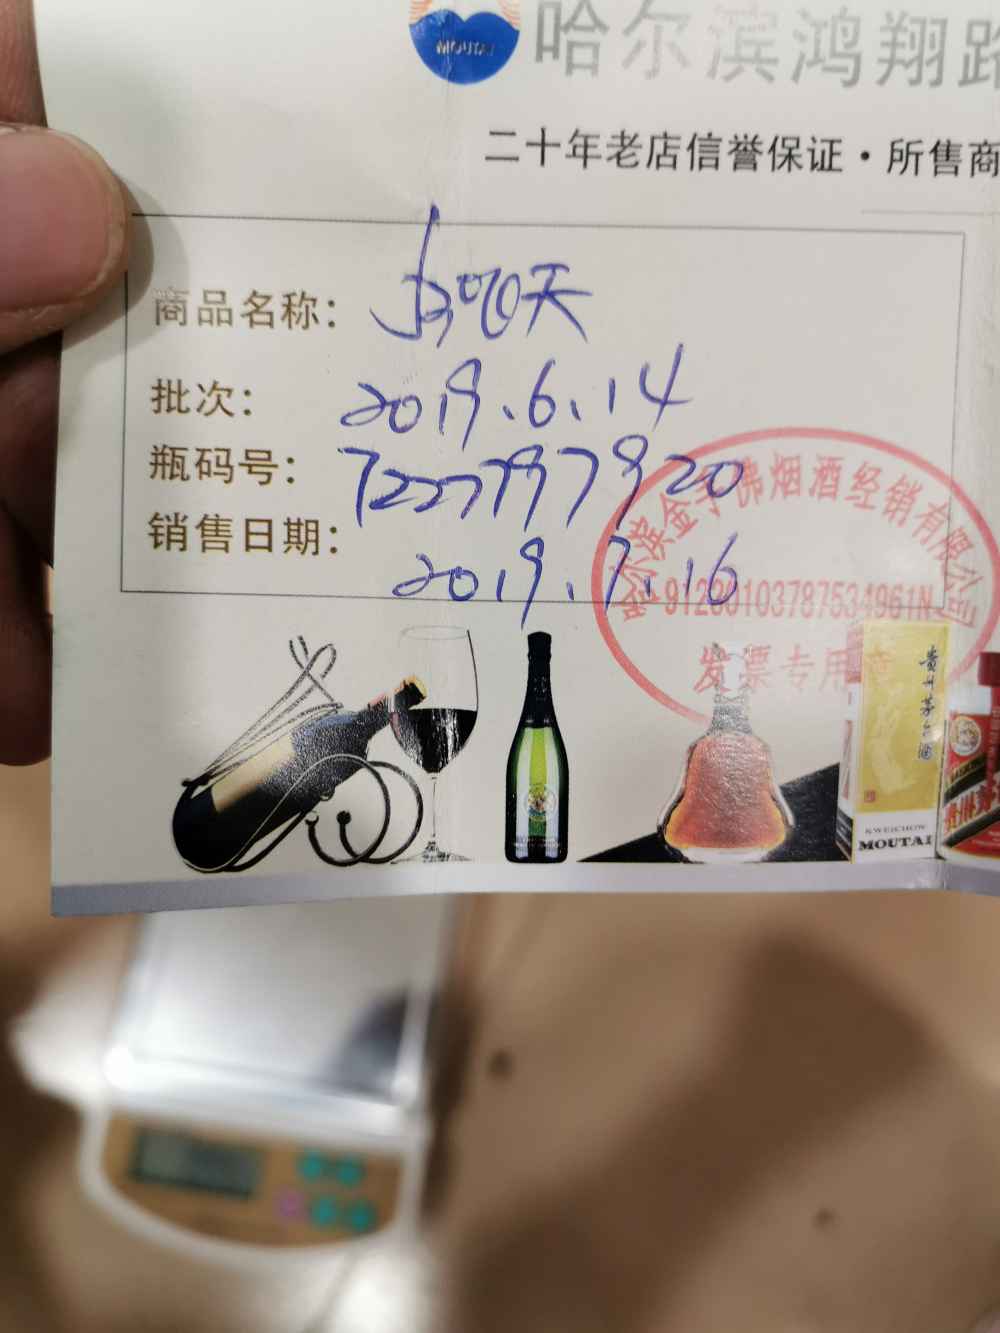 MOUTAI
哈尔滨鸿翔路
二十年老店信誉保证·所售商
商品名称：天
批次：2019.6.14
瓶码号：7227797920
销售日期：2019.7.16
哈尔滨金手佛烟酒经销有限公司
发票专用章
贵州茅台酒
KWEICHOW
MOUTAI
贵州